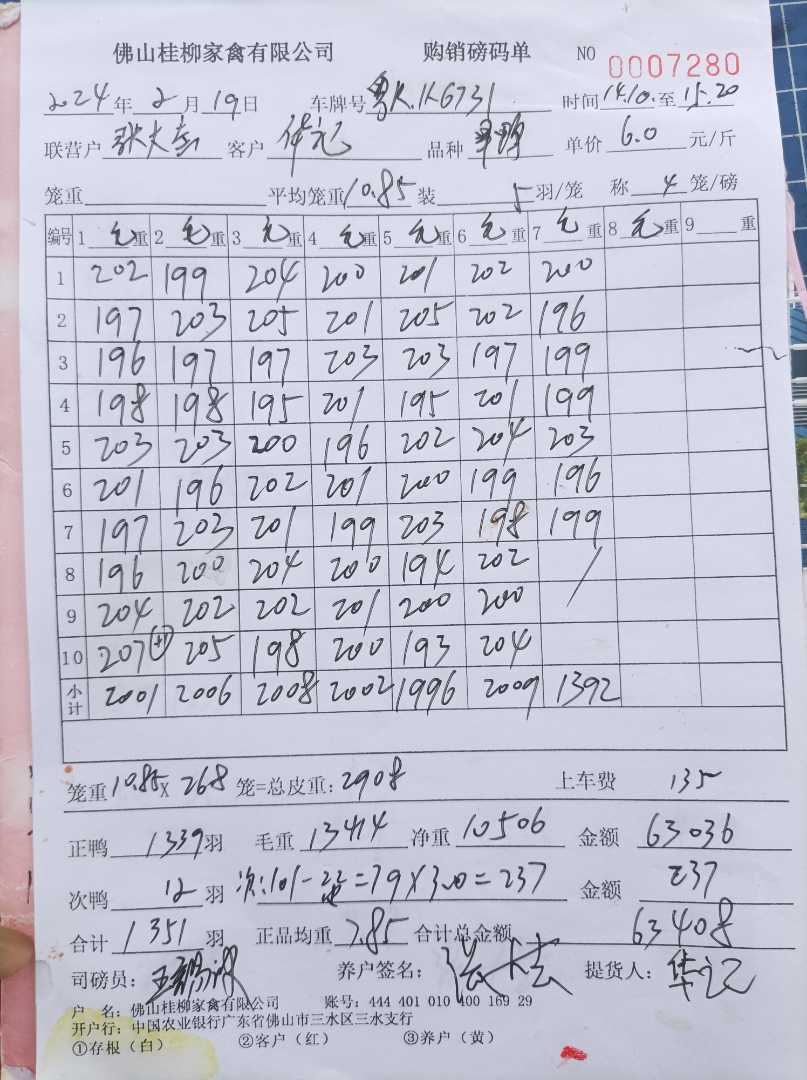 佛山桂柳家禽有限公司 购销磅码单 NO 0007280
2024年2月19日 车牌号 粤K.K6731 时间14.10.至15.20
联营户 客户 华记 品种 单价 6.0 元/斤
笼重 平均笼重10.85 装 5 羽/笼 称 4 笼/磅
编号 1 毛重 2 毛重 3 毛重 4 毛重 5 毛重 6 毛重 7 毛重 8 毛重 9 重
1 202 199 204 200 201 202 200
2 197 203 205 201 205 202 196
3 196 197 197 203 203 197 199
4 198 198 195 201 195 201 199
5 203 203 200 196 202 204 203
6 201 196 202 201 200 199 196
7 197 203 201 199 203 198 199
8 196 200 204 200 194 202 /
9 204 202 202 201 200 200
10 207(+1) 205 198 200 193 204
小计 2001 2006 2008 2002 1996 2009 1392
笼重 10.85 X 268 笼=总皮重: 2908 上车费 135
正鸭 1339 羽 毛重 13414 净重 10506 金额 63036
次鸭 12 羽 次:101-22=79×3.0=237 金额 237
合计 1351 羽 正品均重 7.85 合计总金额 63408
司磅员: 养户签名: 提货人: 华记
户 名: 佛山桂柳家禽有限公司 账号: 444 401 010 400 169 29
开户行: 中国农业银行广东省佛山市三水区三水支行
①存根(白) ②客户(红) ③养户(黄)